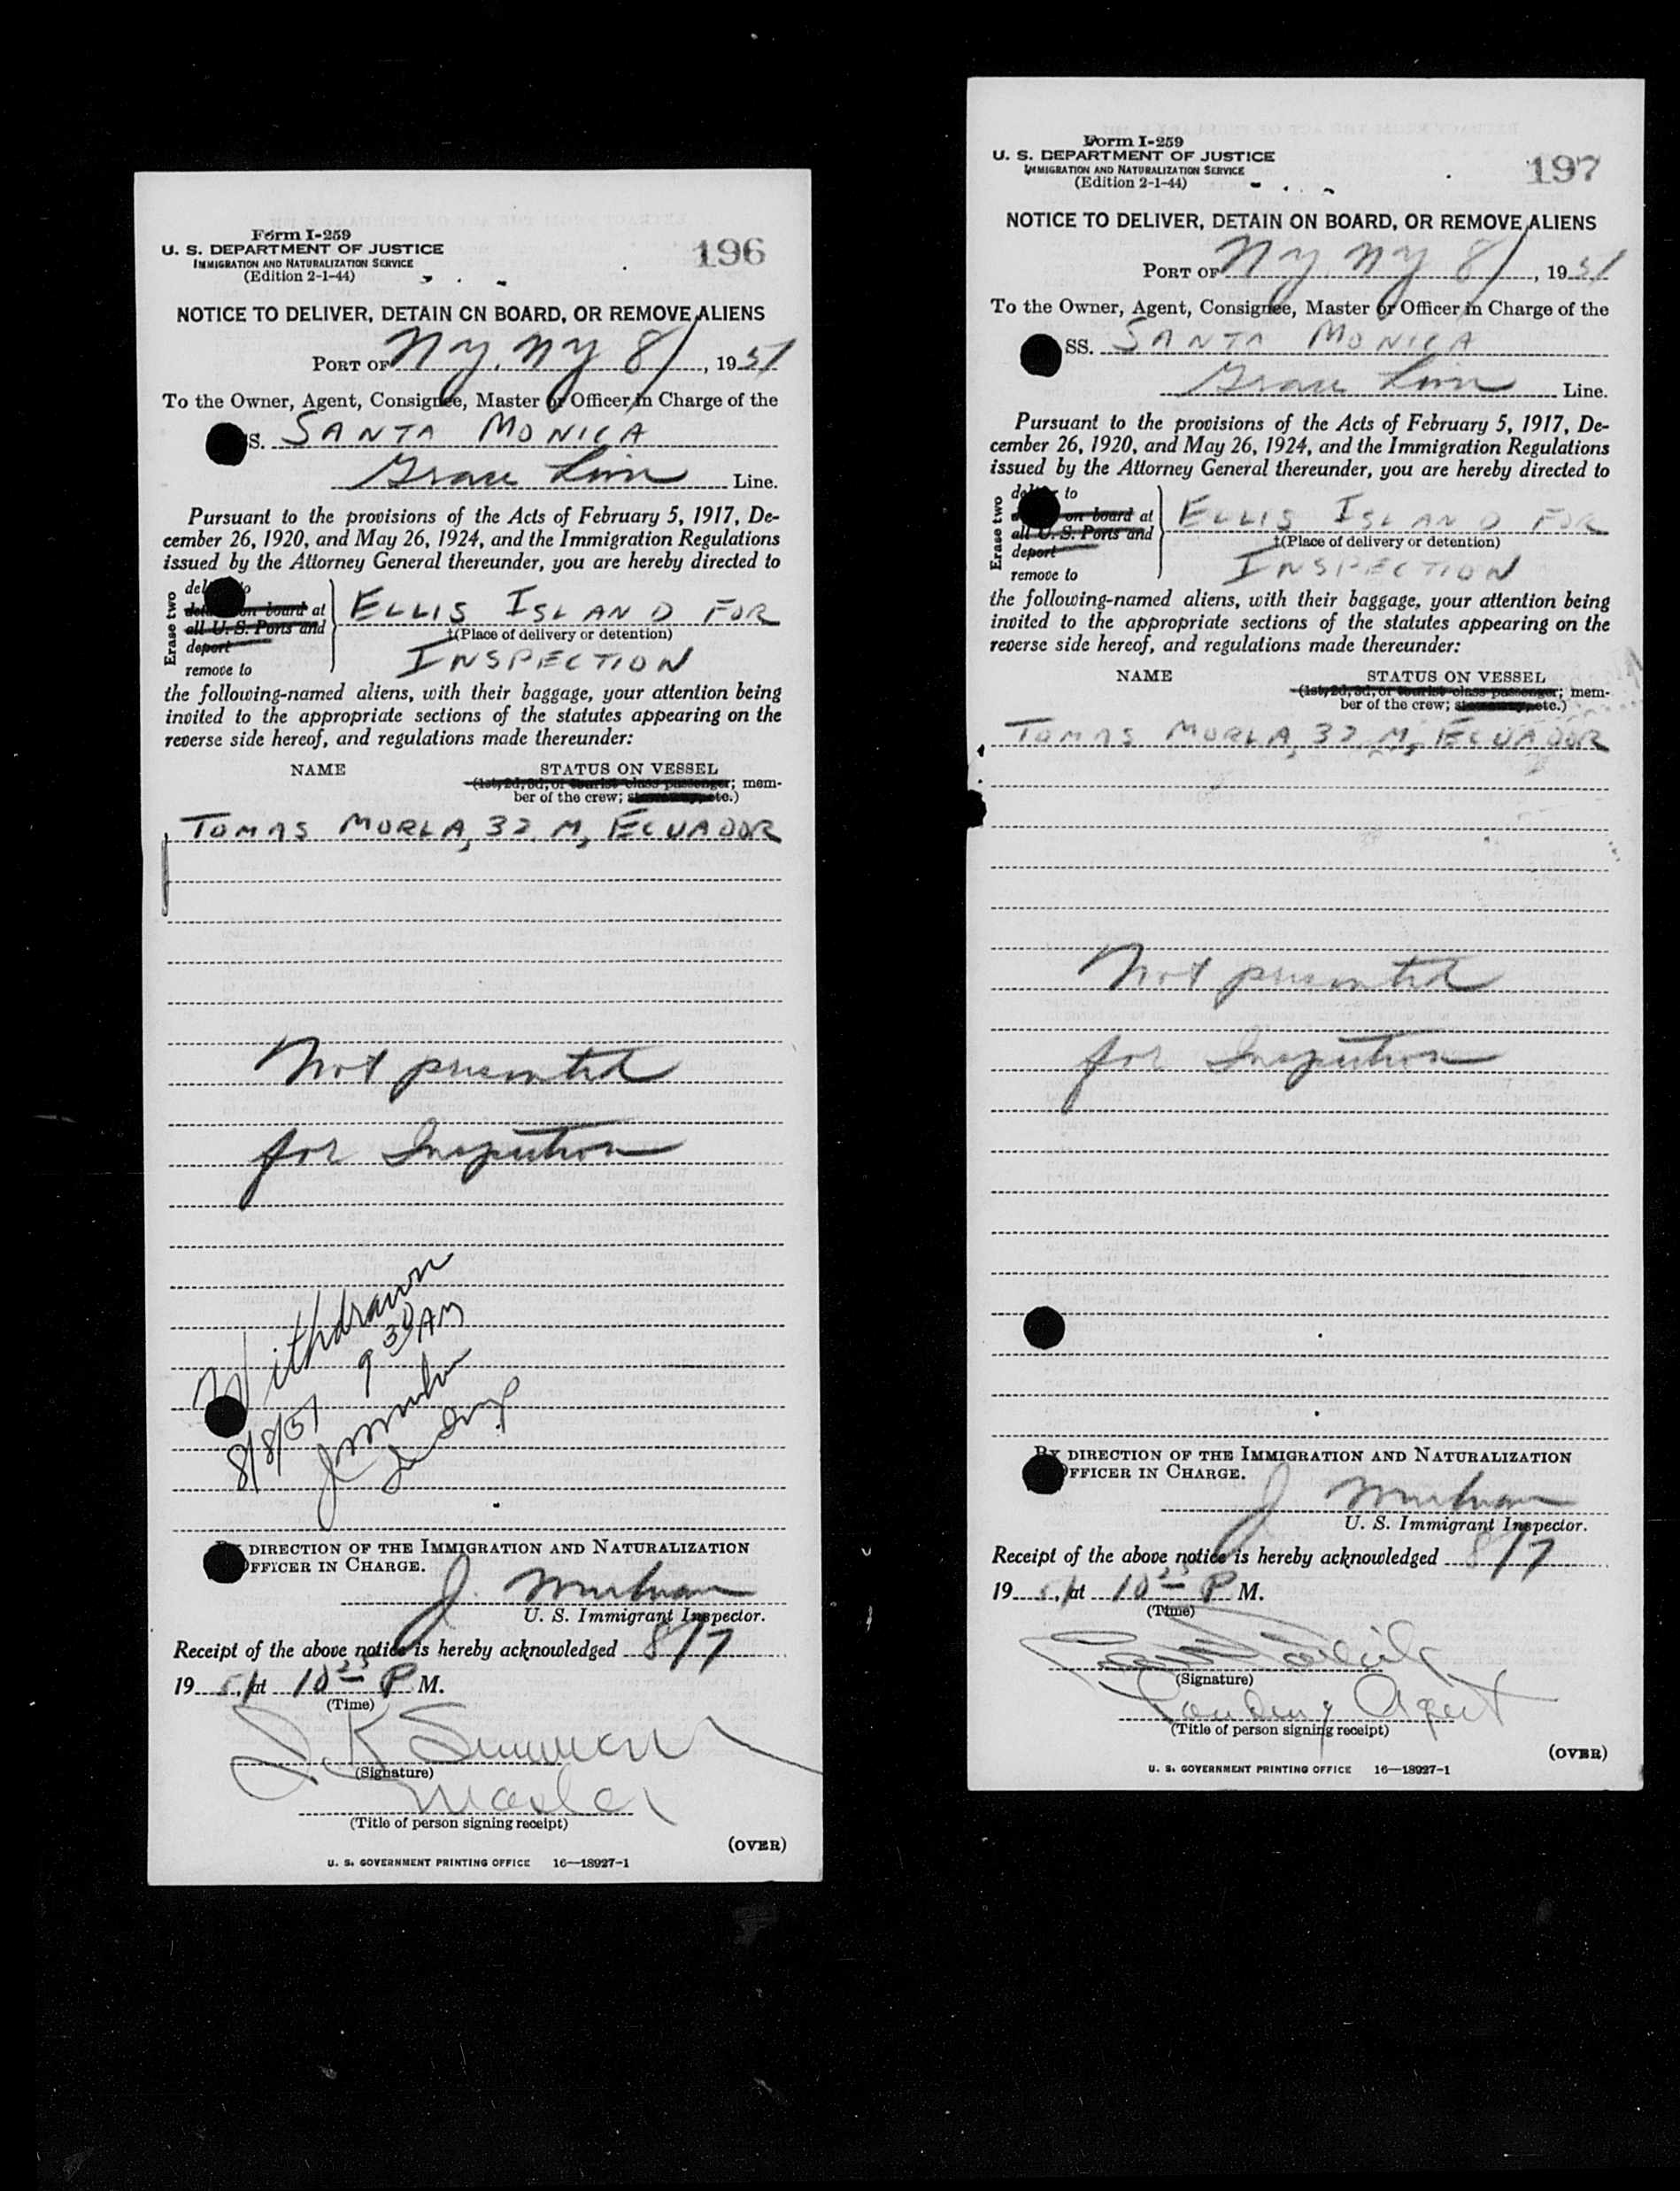 Form I-259
U. S. DEPARTMENT OF JUSTICE
IMMIGRATION AND NATURALIZATION SERVICE
(Edition 2-1-44)
196
NOTICE TO DELIVER, DETAIN ON BOARD, OR REMOVE ALIENS
PORT OF NY, NY 8/ , 1951
To the Owner, Agent, Consignee, Master or Officer in Charge of the
S. SANTA MONICA
Grace Line Line.
Pursuant to the provisions of the Acts of February 5, 1917, De-
cember 26, 1920, and May 26, 1924, and the Immigration Regulations
issued by the Attorney General thereunder, you are hereby directed to
Erase two
on board at
all U. S. Ports and
deport
remove to
ELLIS ISLAND FOR
†(Place of delivery or detention)
INSPECTION
the following-named aliens, with their baggage, your attention being
invited to the appropriate sections of the statutes appearing on the
reverse side hereof, and regulations made thereunder:
NAME STATUS ON VESSEL
(1st, 2d, 3d, or tourist class passenger; mem-
ber of the crew; etc.)
TOMAS MORLA, 32, M, ECUADOR
Not presented
for Inspection
Withdrawn
9 30 AM
8/8/51
BY DIRECTION OF THE IMMIGRATION AND NATURALIZATION
OFFICER IN CHARGE.
J.
U. S. Immigrant Inspector.
Receipt of the above notice is hereby acknowledged 8/7
1951, at 10 25 P M.
(Time)
(Signature)
Master
(Title of person signing receipt)
(OVER)
U. S. GOVERNMENT PRINTING OFFICE 16—18927-1
Form I-259
U. S. DEPARTMENT OF JUSTICE
IMMIGRATION AND NATURALIZATION SERVICE
(Edition 2-1-44)
197
NOTICE TO DELIVER, DETAIN ON BOARD, OR REMOVE ALIENS
PORT OF NY, NY 8/ , 1951
To the Owner, Agent, Consignee, Master or Officer in Charge of the
SS. SANTA MONICA
Grace Line Line.
Pursuant to the provisions of the Acts of February 5, 1917, De-
cember 26, 1920, and May 26, 1924, and the Immigration Regulations
issued by the Attorney General thereunder, you are hereby directed to
Erase two
to
on board at
all U. S. Ports and
deport
remove to
ELLIS ISLAND FOR
†(Place of delivery or detention)
INSPECTION
the following-named aliens, with their baggage, your attention being
invited to the appropriate sections of the statutes appearing on the
reverse side hereof, and regulations made thereunder:
NAME STATUS ON VESSEL
(1st, 2d, 3d, or tourist class passenger; mem-
ber of the crew; etc.)
TOMAS MORLA, 32, M, ECUADOR
Not presented
for Inspection
BY DIRECTION OF THE IMMIGRATION AND NATURALIZATION
OFFICER IN CHARGE.
J
U. S. Immigrant Inspector.
Receipt of the above notice is hereby acknowledged 8/7
1951, at 10 25 P M.
(Time)
(Signature)
Agent
(Title of person signing receipt)
(OVER)
U. S. GOVERNMENT PRINTING OFFICE 16—18927-1